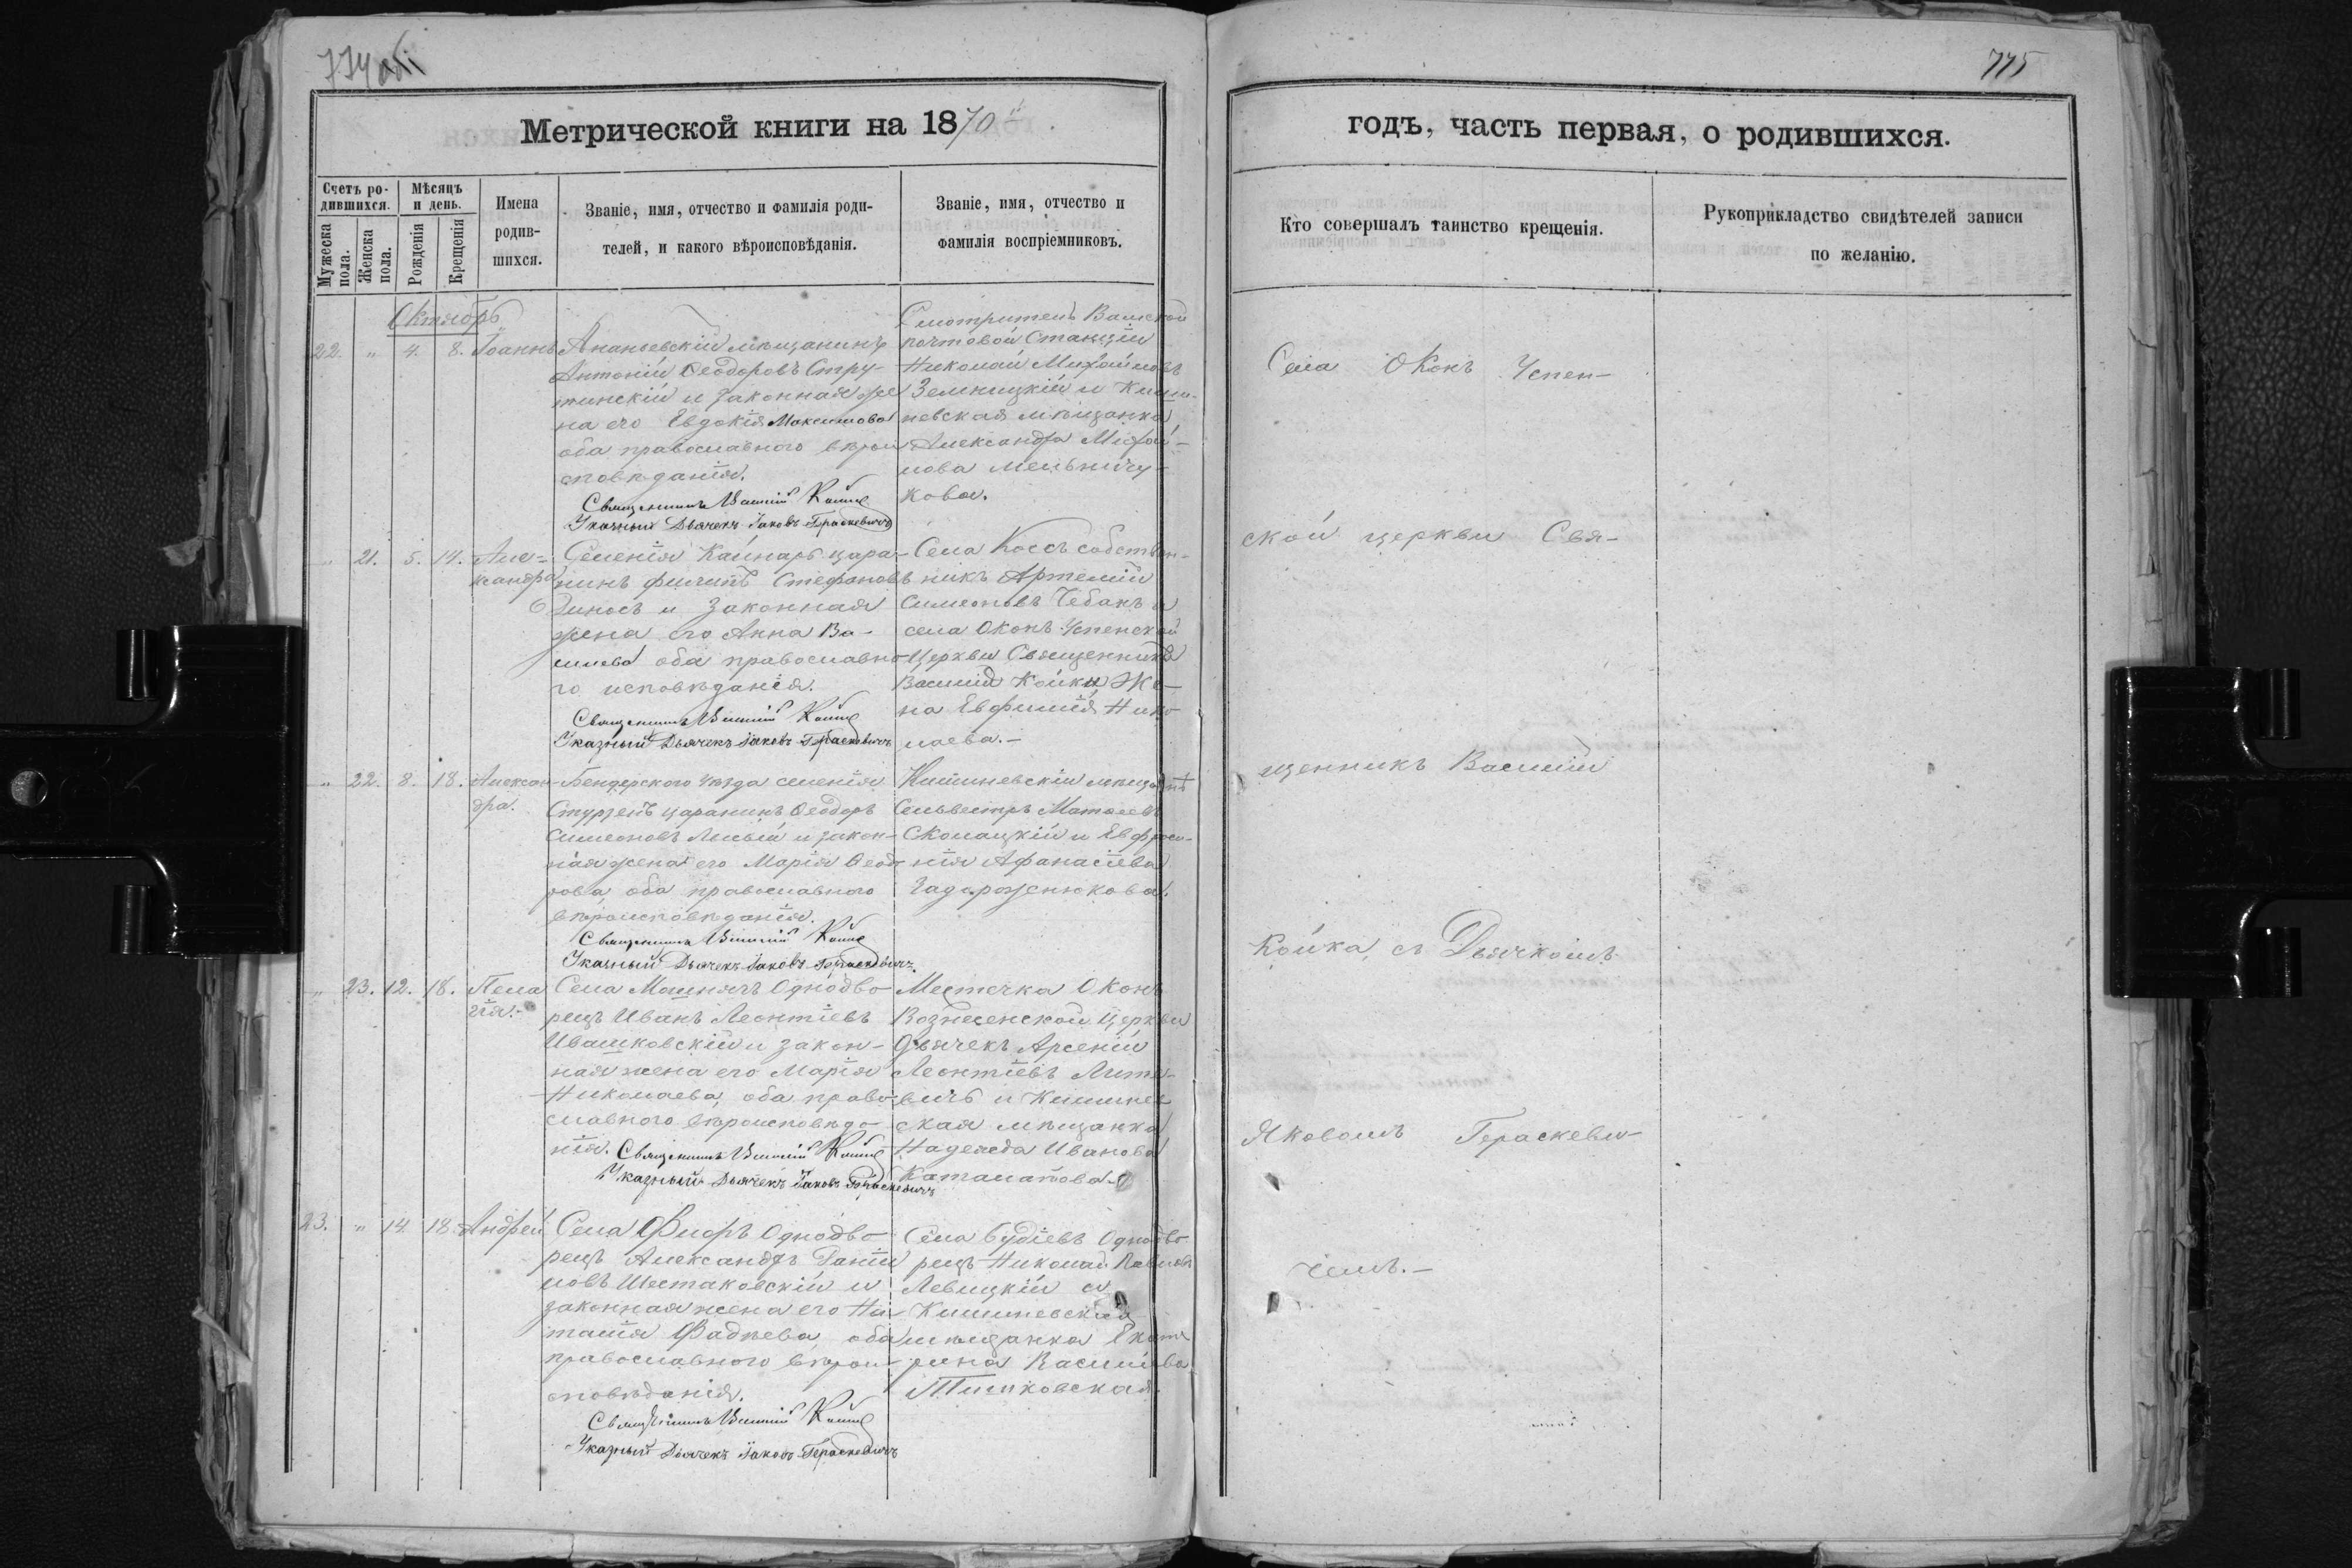 774 об.
775
Метрической книги на 1870й
годъ, часть первая, о родившихся.
Счетъ ро-
дившихся.
Мѣсяцъ
и день.
Мужеска
пола.
Женска
пола.
Рожденія
Крещенія
Имена
родив-
шихся.
Званіе, имя, отчество и фамилія роди-
телей, и какого вѣроисповѣданія.
Званіе, имя, отчество и
фамилія воспріемниковъ.
Кто совершалъ таинство крещенія.
Рукоприкладство свидѣтелей записи
по желанію.
Октябрь
22. " 4. 8. Іоаннъ
Ананьевскій мѣщанинъ
Антоній Ѳеодоровъ Стру-
тинскій и законная же
на его Евдокія Максимова
оба православнаго вѣрои
сповѣданія.
Священникъ Василій Койка
Указный Дьячекъ Іаковъ Гераскевичъ
Смотритель
почтовой Станціи
Николай Михайловъ
Земницкій и Киши-
невская мѣщанка
Александра Михай-
лова Мельничу-
кова.
" 21. 5. 14. Але=
ксандра
Селенія Кайнаръ цара-
нинъ Филипъ Стефановъ
и законная
жена его Анна Ва-
силева оба православно
го исповѣданія.
Священникъ Василій Койка
Указный Дьячекъ Іаковъ Гераскевичъ
Села собствен-
никъ Артемій
Симеоновъ Чебанъ и
села Оконъ Успенской
Церкви Священника
Василія Койки Же-
на Евфимія Нико
лаева.-
" 22. 8. 18. Алексан-
дра.
Бендерскаго уѣзда селенія
царанинъ Ѳеодоръ
Симеоновъ и закон-
ная жена его Марія Ѳеод
рова, оба православнаго
вѣроисповѣданія.
Священникъ Василій Койка
Указный Дьячекъ Іаковъ Гераскевичъ
Кишиневскій мѣщанинъ
Сельвестръ Матѳеевъ
Сколацкій и Евфроси-
нія Афанасіева
" 23. 12. 18. Пела
гія.-
Села Однодво
рецъ Иванъ Леонтіевъ
Ивашковскій и закон-
ная жена его Марія
Николаева, оба право-
славнаго вѣроисповѣда-
нія. Священникъ Василій Койка
Указный Дьячекъ Іаковъ Гераскевичъ
Местечка Оконъ
Вознесенской Церкви
Дьячекъ Арсеній
Леонтіевъ
и Кишинев
ская мѣщанка
Надежда Иванова
23. " 14. 18. Андрей
Села Однодво
рецъ Александръ
Шестаковскій и
законная жена его На-
талія Фадѣева, оба
православнаго вѣрои-
сповѣданія.
Священникъ Василій Койка
Указный Дьячекъ Іаковъ Гераскевичъ
Села Будіевъ Однодво
рецъ Николай Павловъ
Левицкій и
Кишиневская
мѣщанка Екате
рина Василіева
Села Оконъ Успен-
ской церкви Свя-
щенникъ Василій
Койка, съ Дьячкомъ
Яковомъ Гераскеви-
чемъ.-